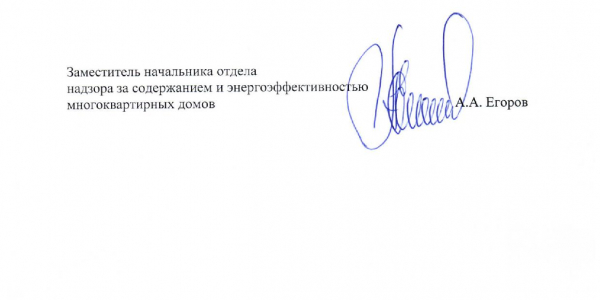 Заместитель начальника отдела
надзора за содержанием и энергоэффективностью
многоквартирных домов А.А. Егоров